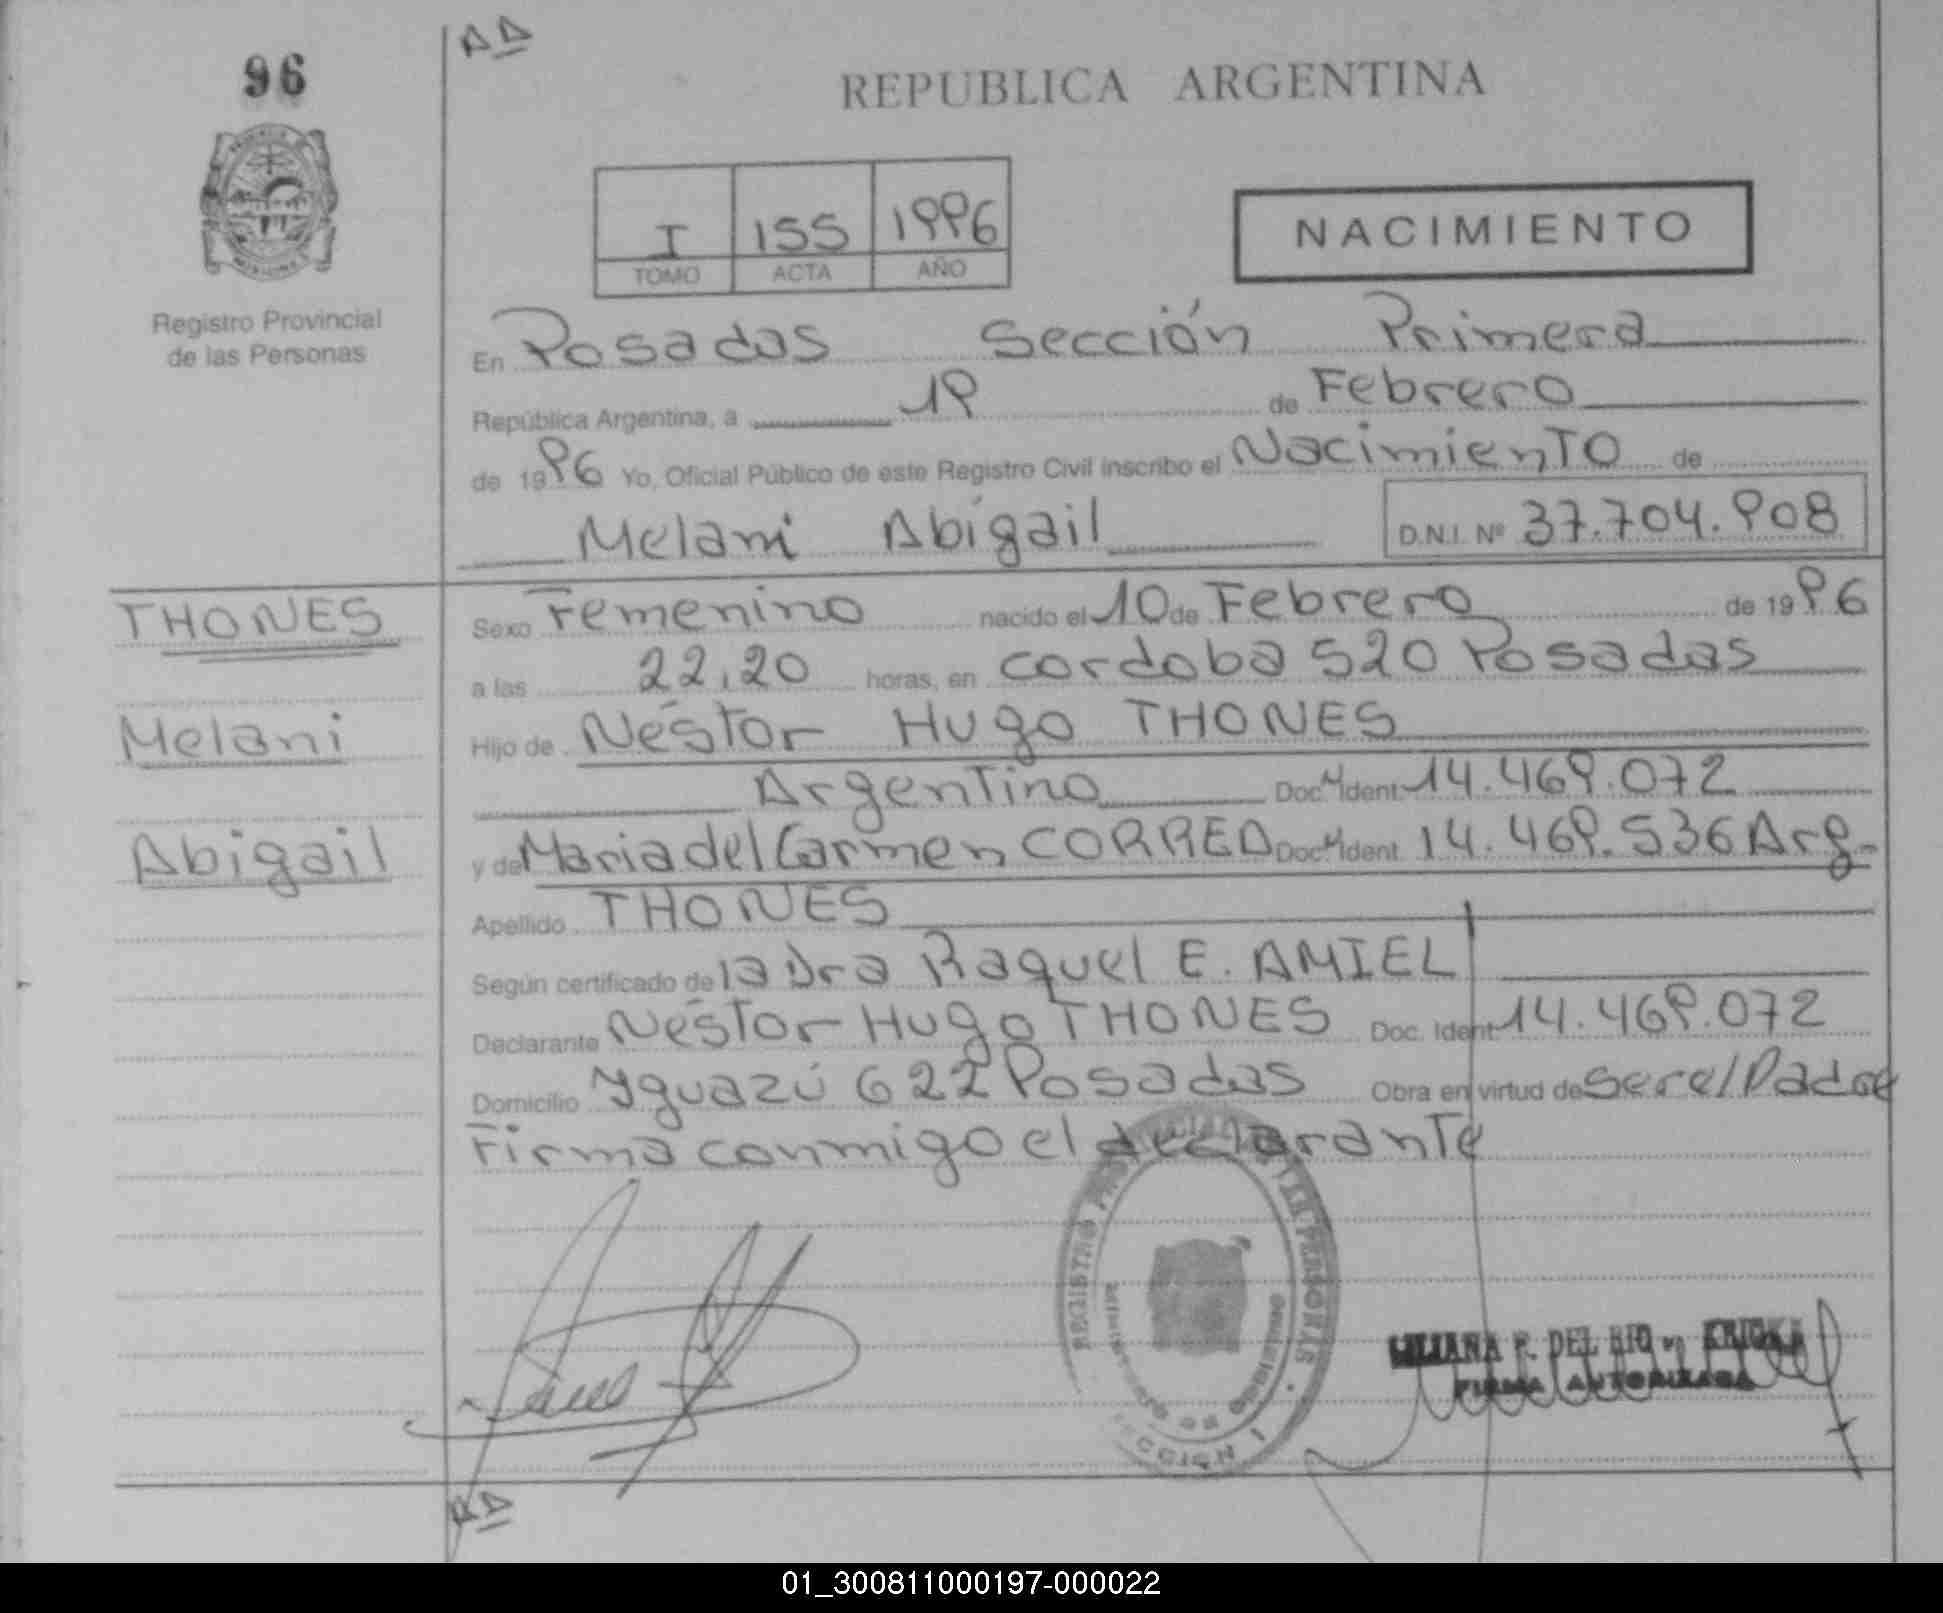 96
AD
REPUBLICA ARGENTINA
I 155 1996
TOMO ACTA AÑO
NACIMIENTO
Registro Provincial
de las Personas
En Posadas Sección Primera
República Argentina, a 19 de Febrero
de 1996 Yo, Oficial Público de este Registro Civil inscribo el Nacimiento de
Melani Abigail D.N.I. Nº 37.704.908
THONES
Melani
Abigail
Sexo Femenino nacido el 10 de Febrero de 1996
a las 22,20 horas, en cordoba 520 Posadas
Hijo de Néstor Hugo THONES
Argentino Doc. Ident. 14.469.072
y de Maria del Carmen CORREA Doc. Ident. 14.469.536 Arg.
Apellido THONES
Según certificado de la Dra Raquel E. AMIEL
Declarante Néstor Hugo THONES Doc. Ident. 14.469.072
Domicilio Yguazú 622 Posadas Obra en virtud de ser el Padre
Firma conmigo el declarante
LILIANA F. DEL RIO
FIRMA AUTORIZADA
SECCION 1
AD
01_300811000197-000022